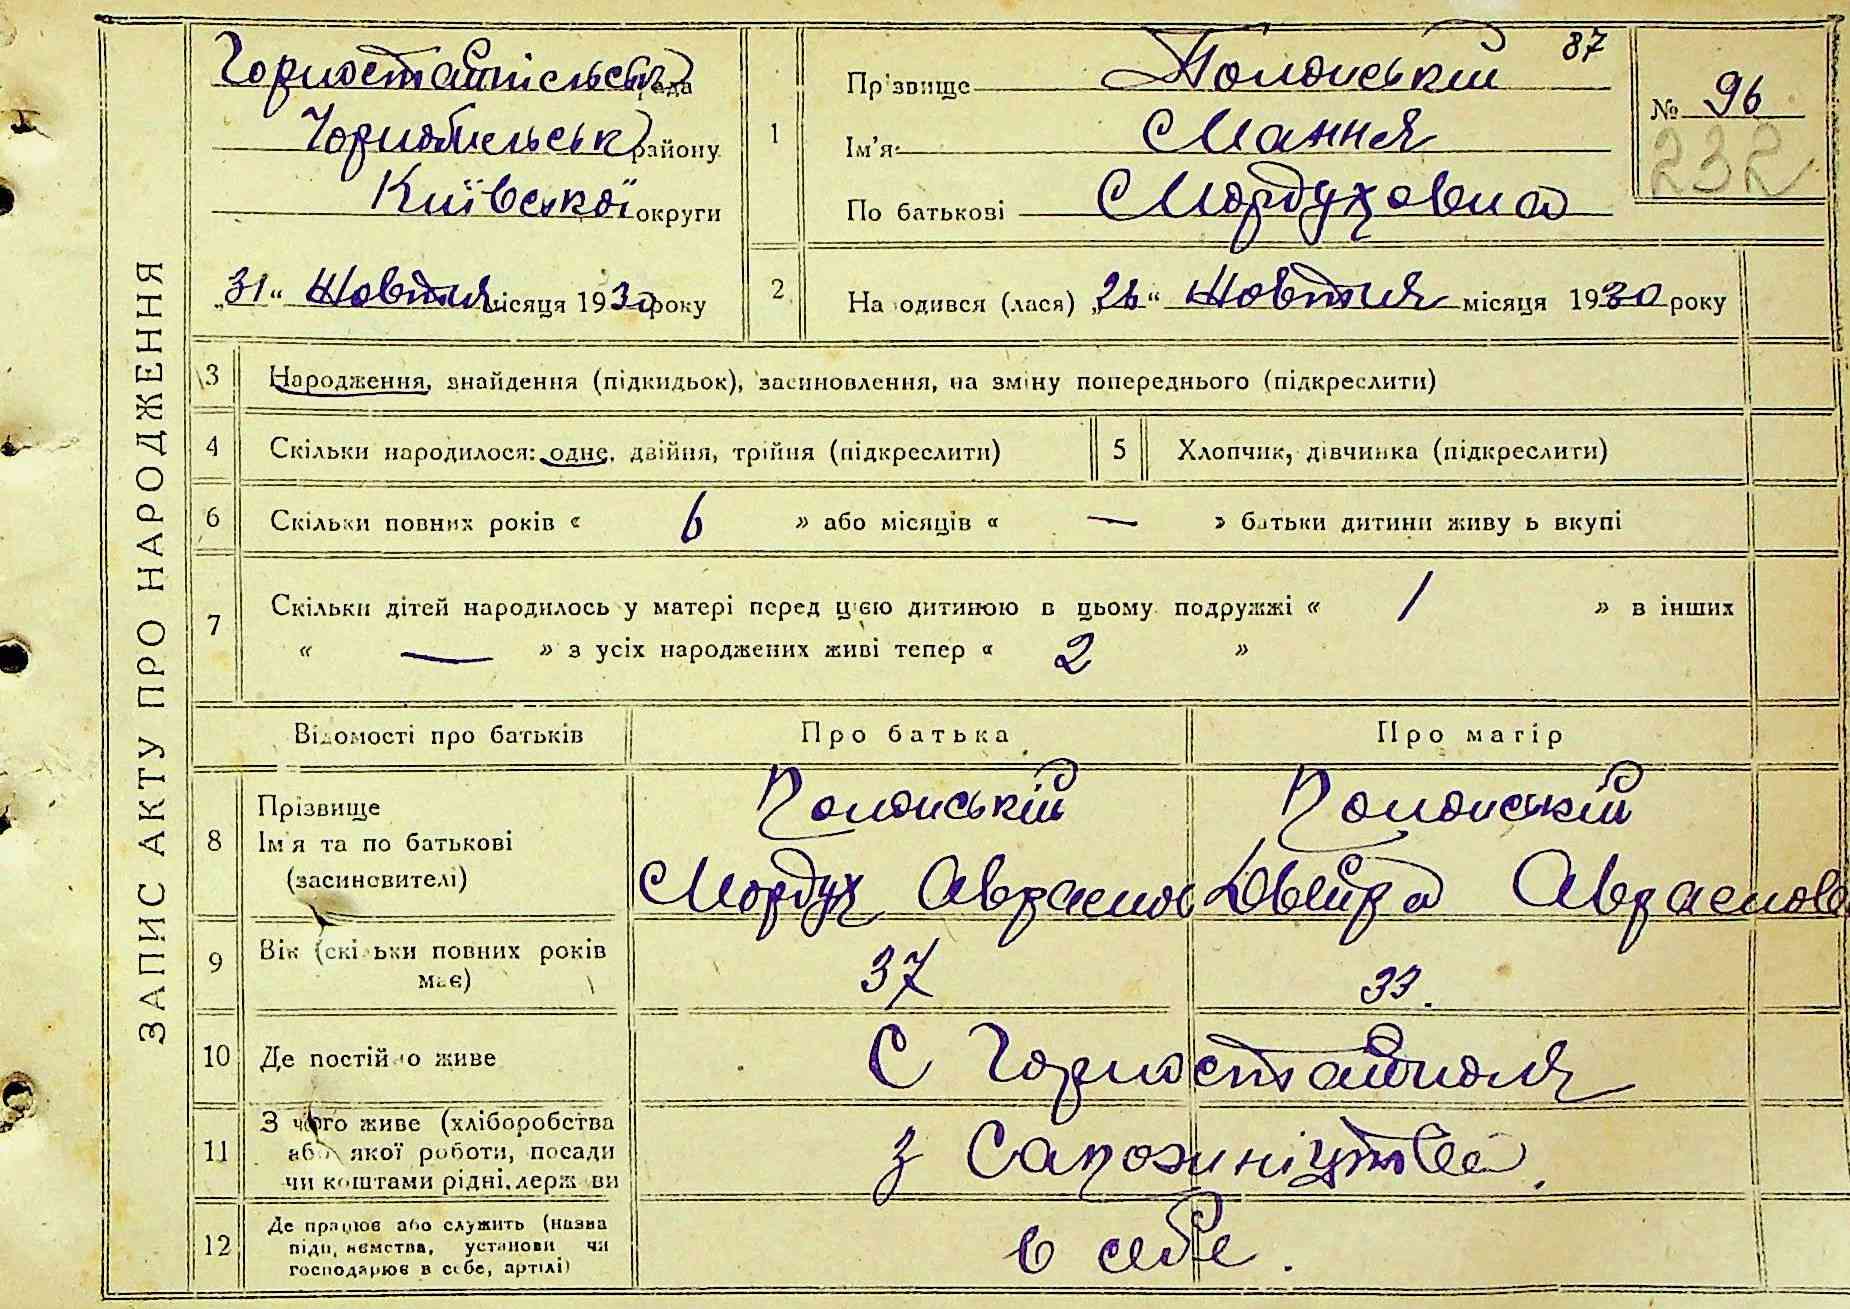 ЗАПИС АКТУ ПРО НАРОДЖЕННЯ
Горностайпільськ рада
Чорнобильськ району
Київської округи
„31“ Жовтня місяця 1930 року
87
1 Прізвище Полонській
Ім'я Мання
По батькові Мордуховна
№ 96
232
2 Народився (лася) „26“ Жовтня місяця 1930 року
3 Народження, знайдення (підкидьок), засиновлення, на зміну попереднього (підкреслити)
4 Скільки народилося: одне, двійня, трійня (підкреслити)
5 Хлопчик, дівчинка (підкреслити)
6 Скільки повних років « 6 » або місяців « — » батьки дитини живуть вкупі
7 Скільки дітей народилось у матері перед цією дитиною в цьому подружжі « 1 » в інших
« — » з усіх народжених живі тепер « 2 »
Відомості про батьків Про батька Про матір
8 Прізвище Полонській Полонській
Ім'я та по батькові
(засиновителі) Мордух Аврамов Двейра Аврамова
9 Вік (скільки повних років
має) 37 33.
10 Де постійно живе С Горностайполя
11 З чого живе (хліборобства
або якої роботи, посади
чи коштами рідні, держави з Сапожництва.
12 Де працює або служить (назва
підприємства, установи чи
господарює в себе, артілі) в себе.